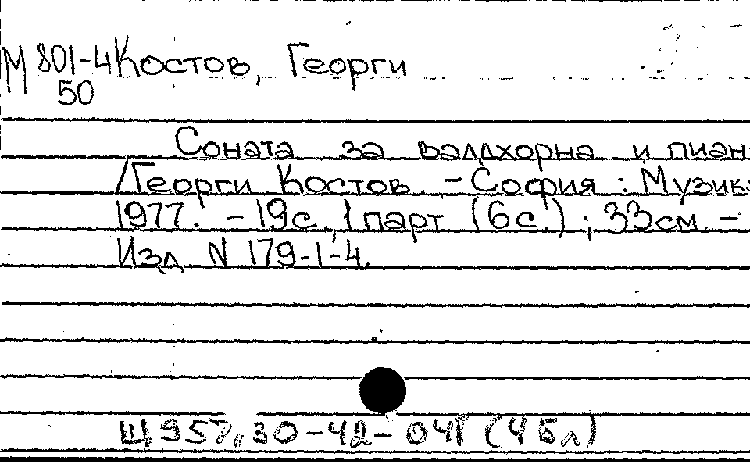 М 801-4 Костов, Георги
50
Соната за валдхорна и пиан
/Георги Костов. - София : Музик
1977. - 19с., 1 парт (6с.) ; 33см. -
Изд. N 179-1-4.
Щ957.30-42-041 (4Бл)